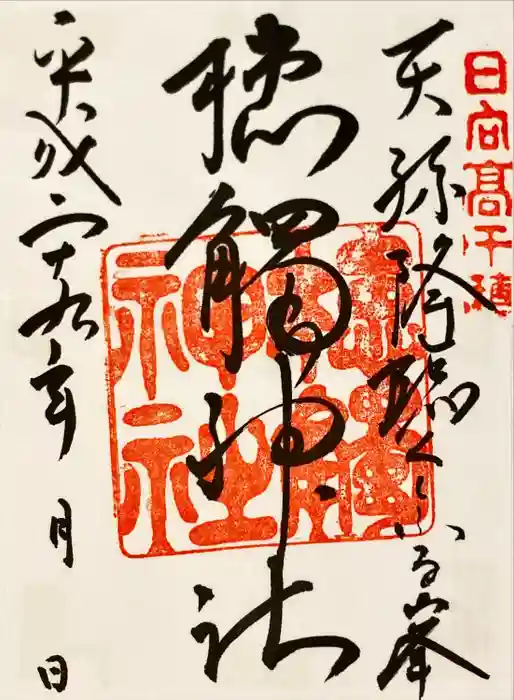 日向髙千穂
天孫降臨くしふる峯
槵觸神社
槵觸神社
平成二十九年 月 日